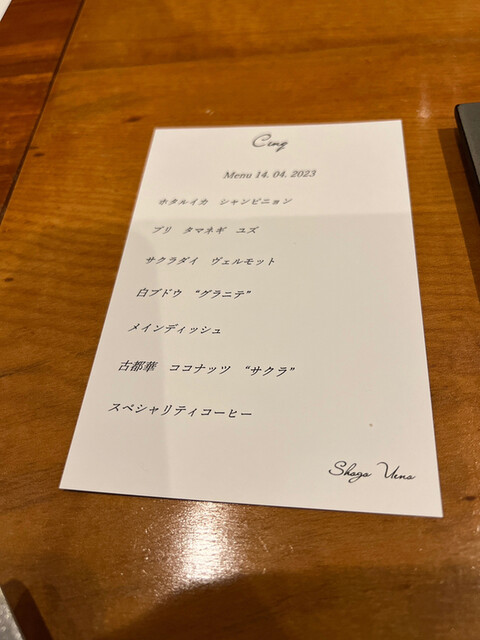 Cinq
Menu 14. 04. 2023
ホタルイカ シャンピニョン
ブリ タマネギ ユズ
サクラダイ ヴェルモット
白ブドウ “グラニテ”
メインディッシュ
古都華 ココナッツ “サクラ”
スペシャリティコーヒー
Shogo Ueno